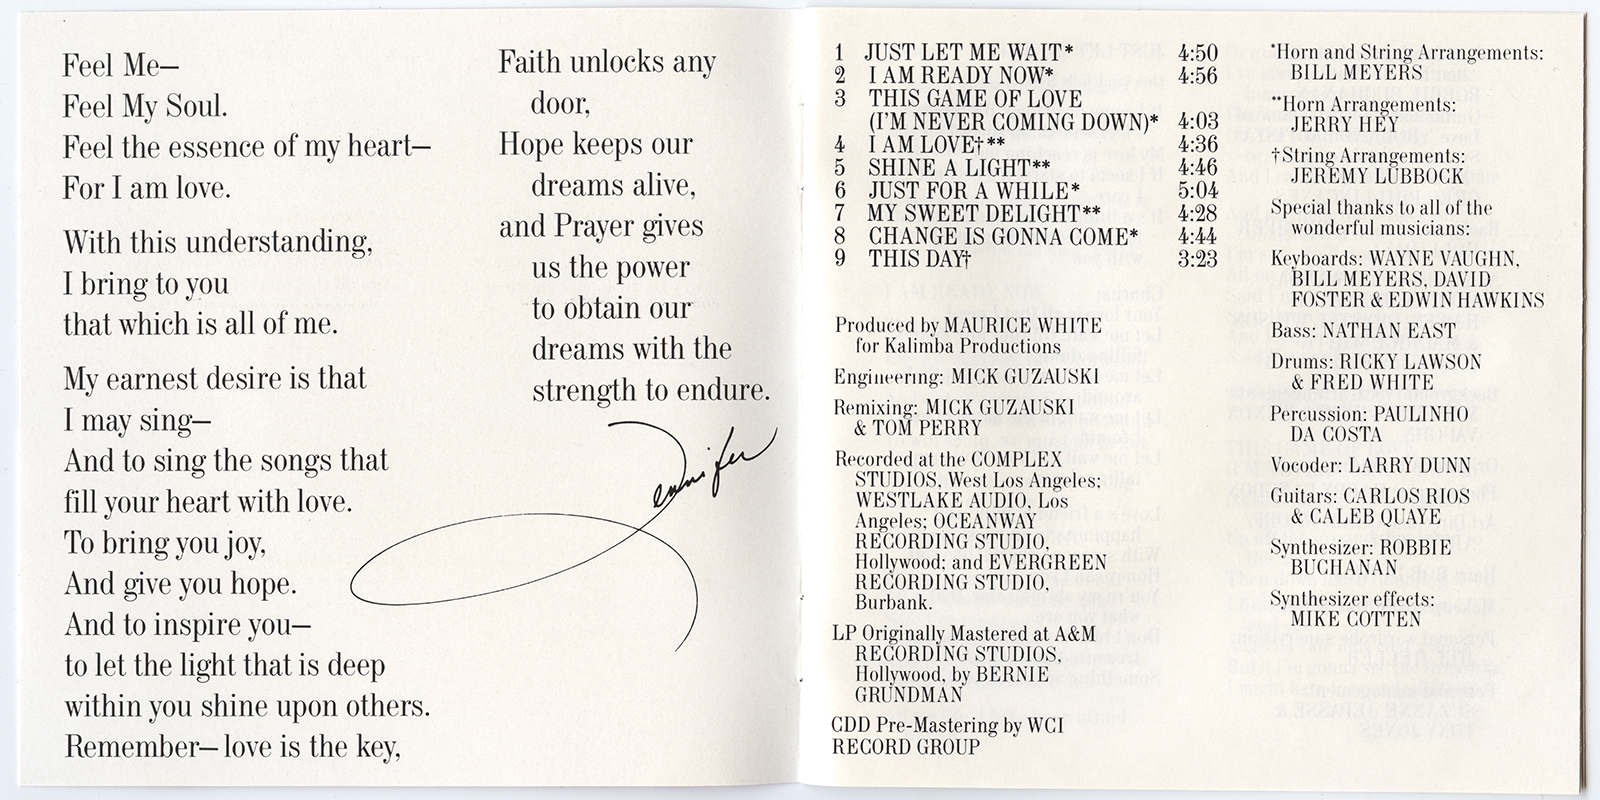 Feel Me—
Feel My Soul.
Feel the essence of my heart—
For I am love.
With this understanding,
I bring to you
that which is all of me.
My earnest desire is that
I may sing—
And to sing the songs that
fill your heart with love.
To bring you joy,
And give you hope.
And to inspire you—
to let the light that is deep
within you shine upon others.
Remember—love is the key,
Faith unlocks any
door,
Hope keeps our
dreams alive,
and Prayer gives
us the power
to obtain our
dreams with the
strength to endure.
Jennifer
1 JUST LET ME WAIT* 4:50
2 I AM READY NOW* 4:56
3 THIS GAME OF LOVE
(I'M NEVER COMING DOWN)* 4:03
4 I AM LOVE†** 4:36
5 SHINE A LIGHT** 4:46
6 JUST FOR A WHILE* 5:04
7 MY SWEET DELIGHT** 4:28
8 CHANGE IS GONNA COME* 4:44
9 THIS DAY† 3:23
Produced by MAURICE WHITE
for Kalimba Productions
Engineering: MICK GUZAUSKI
Remixing: MICK GUZAUSKI
& TOM PERRY
Recorded at the COMPLEX
STUDIOS, West Los Angeles;
WESTLAKE AUDIO, Los
Angeles; OCEANWAY
RECORDING STUDIO,
Hollywood; and EVERGREEN
RECORDING STUDIO,
Burbank.
LP Originally Mastered at A&M
RECORDING STUDIOS,
Hollywood, by BERNIE
GRUNDMAN
CDD Pre-Mastering by WCI
RECORD GROUP
*Horn and String Arrangements:
BILL MEYERS
**Horn Arrangements:
JERRY HEY
†String Arrangements:
JEREMY LUBBOCK
Special thanks to all of the
wonderful musicians:
Keyboards: WAYNE VAUGHN,
BILL MEYERS, DAVID
FOSTER & EDWIN HAWKINS
Bass: NATHAN EAST
Drums: RICKY LAWSON
& FRED WHITE
Percussion: PAULINHO
DA COSTA
Vocoder: LARRY DUNN
Guitars: CARLOS RIOS
& CALEB QUAYE
Synthesizer: ROBBIE
BUCHANAN
Synthesizer effects:
MIKE COTTEN